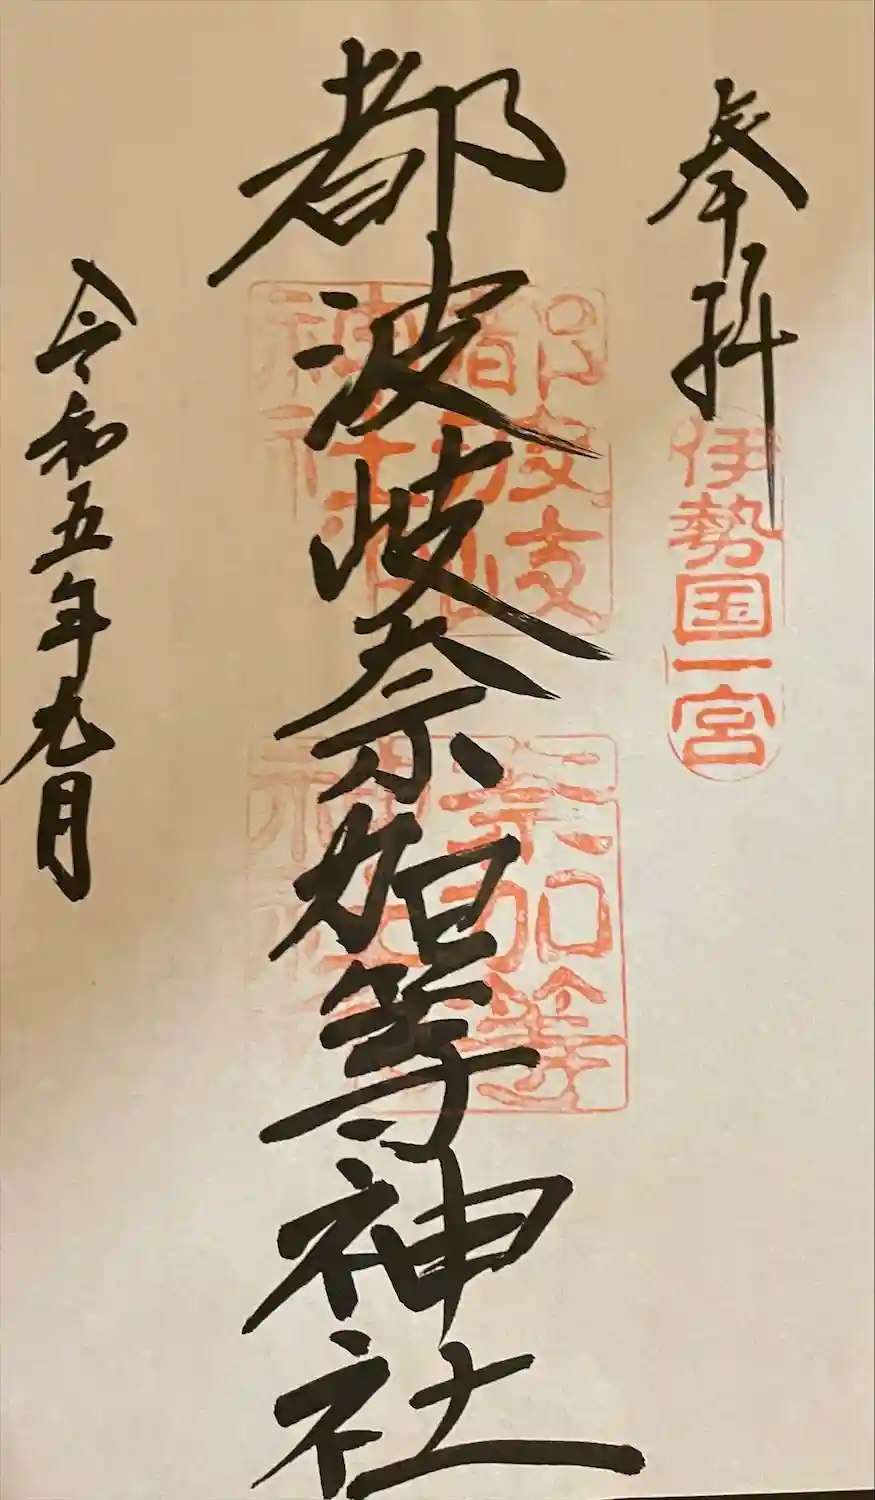 奉拝
伊勢国一宮
都波岐奈加等神社
都波岐神社
奈加等神社
令和五年九月